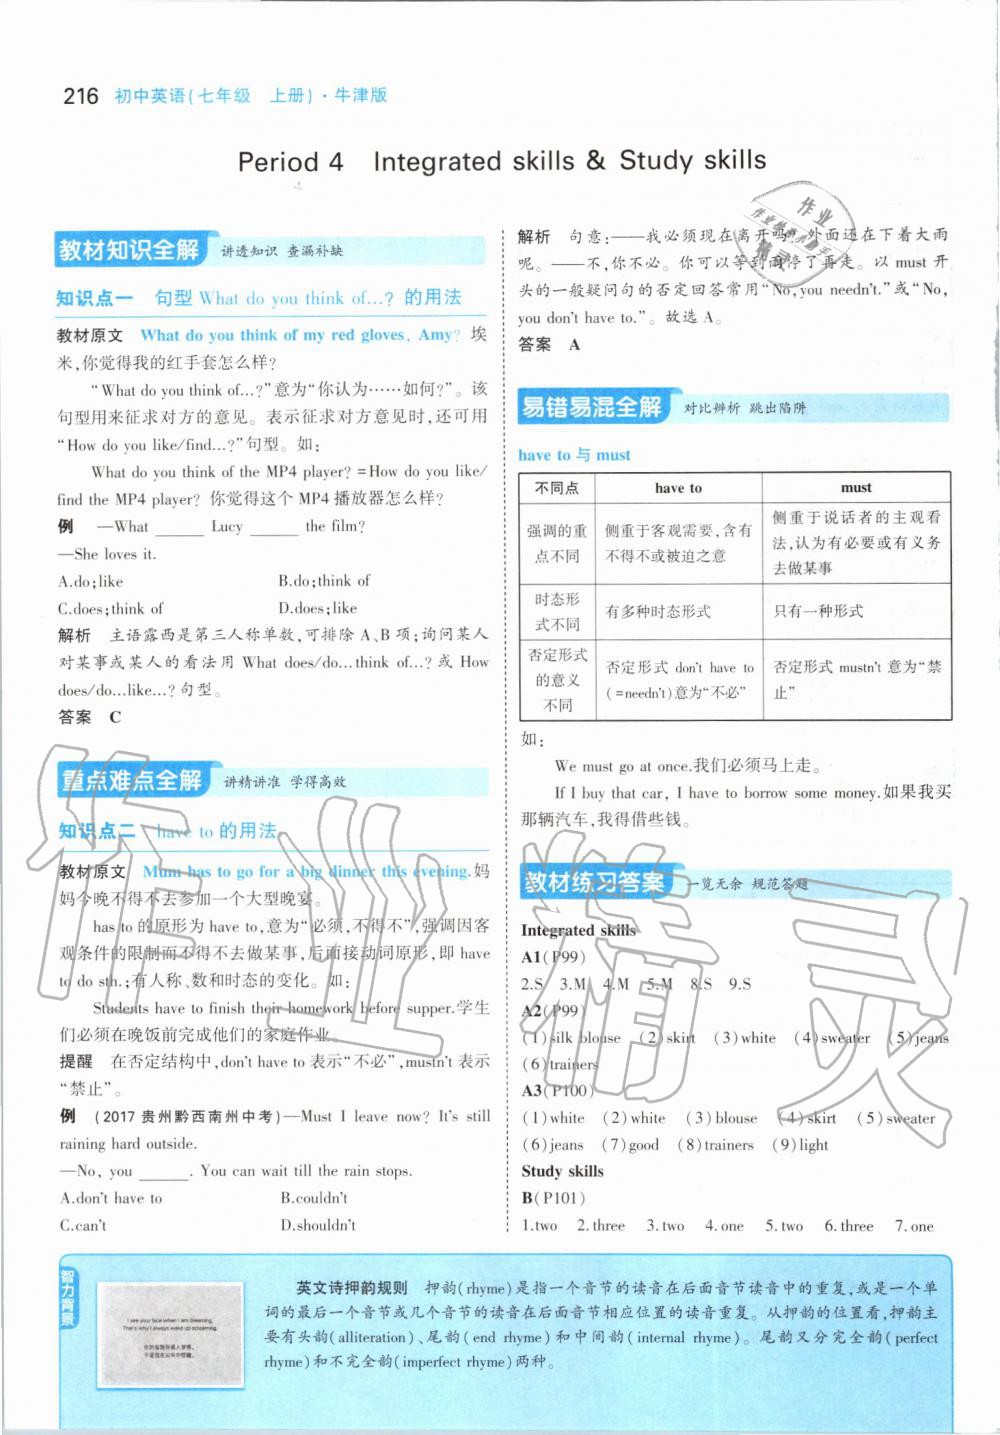 216 初中英语(七年级 上册)·牛津版
Period 4 Integrated skills & Study skills
教材知识全解 讲透知识 查漏补缺
知识点一 句型 What do you think of…? 的用法
教材原文 What do you think of my red gloves, Amy? 埃
米,你觉得我的红手套怎么样?
“What do you think of…?”意为“你认为……如何?”。该
句型用来征求对方的意见。表示征求对方意见时,还可用
“How do you like/find…?”句型。如:
What do you think of the MP4 player? =How do you like/
find the MP4 player? 你觉得这个 MP4 播放器怎么样?
例 —What ______ Lucy ______ the film?
—She loves it.
A.do;like B.do;think of
C.does;think of D.does;like
解析 主语露西是第三人称单数,可排除 A、B 项;询问某人
对某事或某人的看法用 What does/do…think of…? 或 How
does/do…like…? 句型。
答案 C
重点难点全解 讲精讲准 学得高效
知识点二 have to 的用法
教材原文 Mum has to go for a big dinner this evening.妈
妈今晚不得不去参加一个大型晚宴。
has to 的原形为 have to,意为“必须,不得不”,强调因客
观条件的限制而不得不去做某事,后面接动词原形,即 have
to do sth.;有人称、数和时态的变化。如:
Students have to finish their homework before supper.学生
们必须在晚饭前完成他们的家庭作业。
提醒 在否定结构中,don't have to 表示“不必”,mustn't 表示
“禁止”。
例 (2017 贵州黔西南州中考)—Must I leave now? It's still
raining hard outside.
—No, you ______ . You can wait till the rain stops.
A.don't have to B.couldn't
C.can't D.shouldn't
解析 句意:——我必须现在离开吗? 外面还在下着大雨
呢。——不,你不必。你可以等到雨停了再走。以 must 开
头的一般疑问句的否定回答常用“No,you needn't.”或“No,
you don't have to.”。故选 A。
答案 A
易错易混全解 对比辨析 跳出陷阱
have to 与 must
不同点 have to must
强调的重点不同 侧重于客观需要,含有不得不或被迫之意 侧重于说话者的主观看法,认为有必要或有义务去做某事
时态形式不同 有多种时态形式 只有一种形式
否定形式的意义不同 否定形式 don't have to (=needn't)意为“不必” 否定形式 mustn't 意为“禁止”
如:
We must go at once.我们必须马上走。
If I buy that car, I have to borrow some money.如果我买
那辆汽车,我得借些钱。
教材练习答案 一览无余 规范答题
Integrated skills
A1(P99)
2.S 3.M 4.M 5.M 8.S 9.S
A2(P99)
(1)silk blouse (2)skirt (3)white (4)sweater (5)jeans
(6)trainers
A3(P100)
(1)white (2)white (3)blouse (4)skirt (5)sweater
(6)jeans (7)good (8)trainers (9)light
Study skills
B(P101)
1.two 2.three 3.two 4.one 5.two 6.three 7.one
智力背景
I see your face when I am dreaming.
That's why I always wake up screaming.
英文诗押韵规则 押韵(rhyme)是指一个音节的读音在后面音节读音中的重复,或是一个单
词的最后一个音节或几个音节的读音在后面音节相应位置的读音重复。从押韵的位置看,押韵主
要有头韵(alliteration)、尾韵(end rhyme)和中间韵(internal rhyme)。尾韵又分完全韵(perfect
rhyme)和不完全韵(imperfect rhyme)两种。
作业精灵